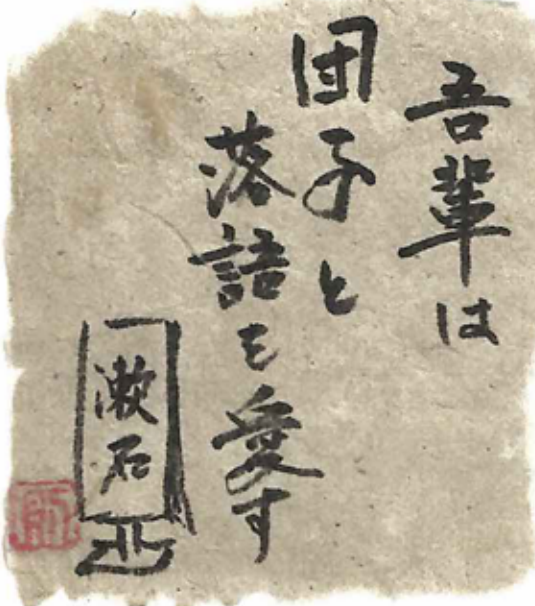 吾輩は
団子と
落語を愛す
漱石